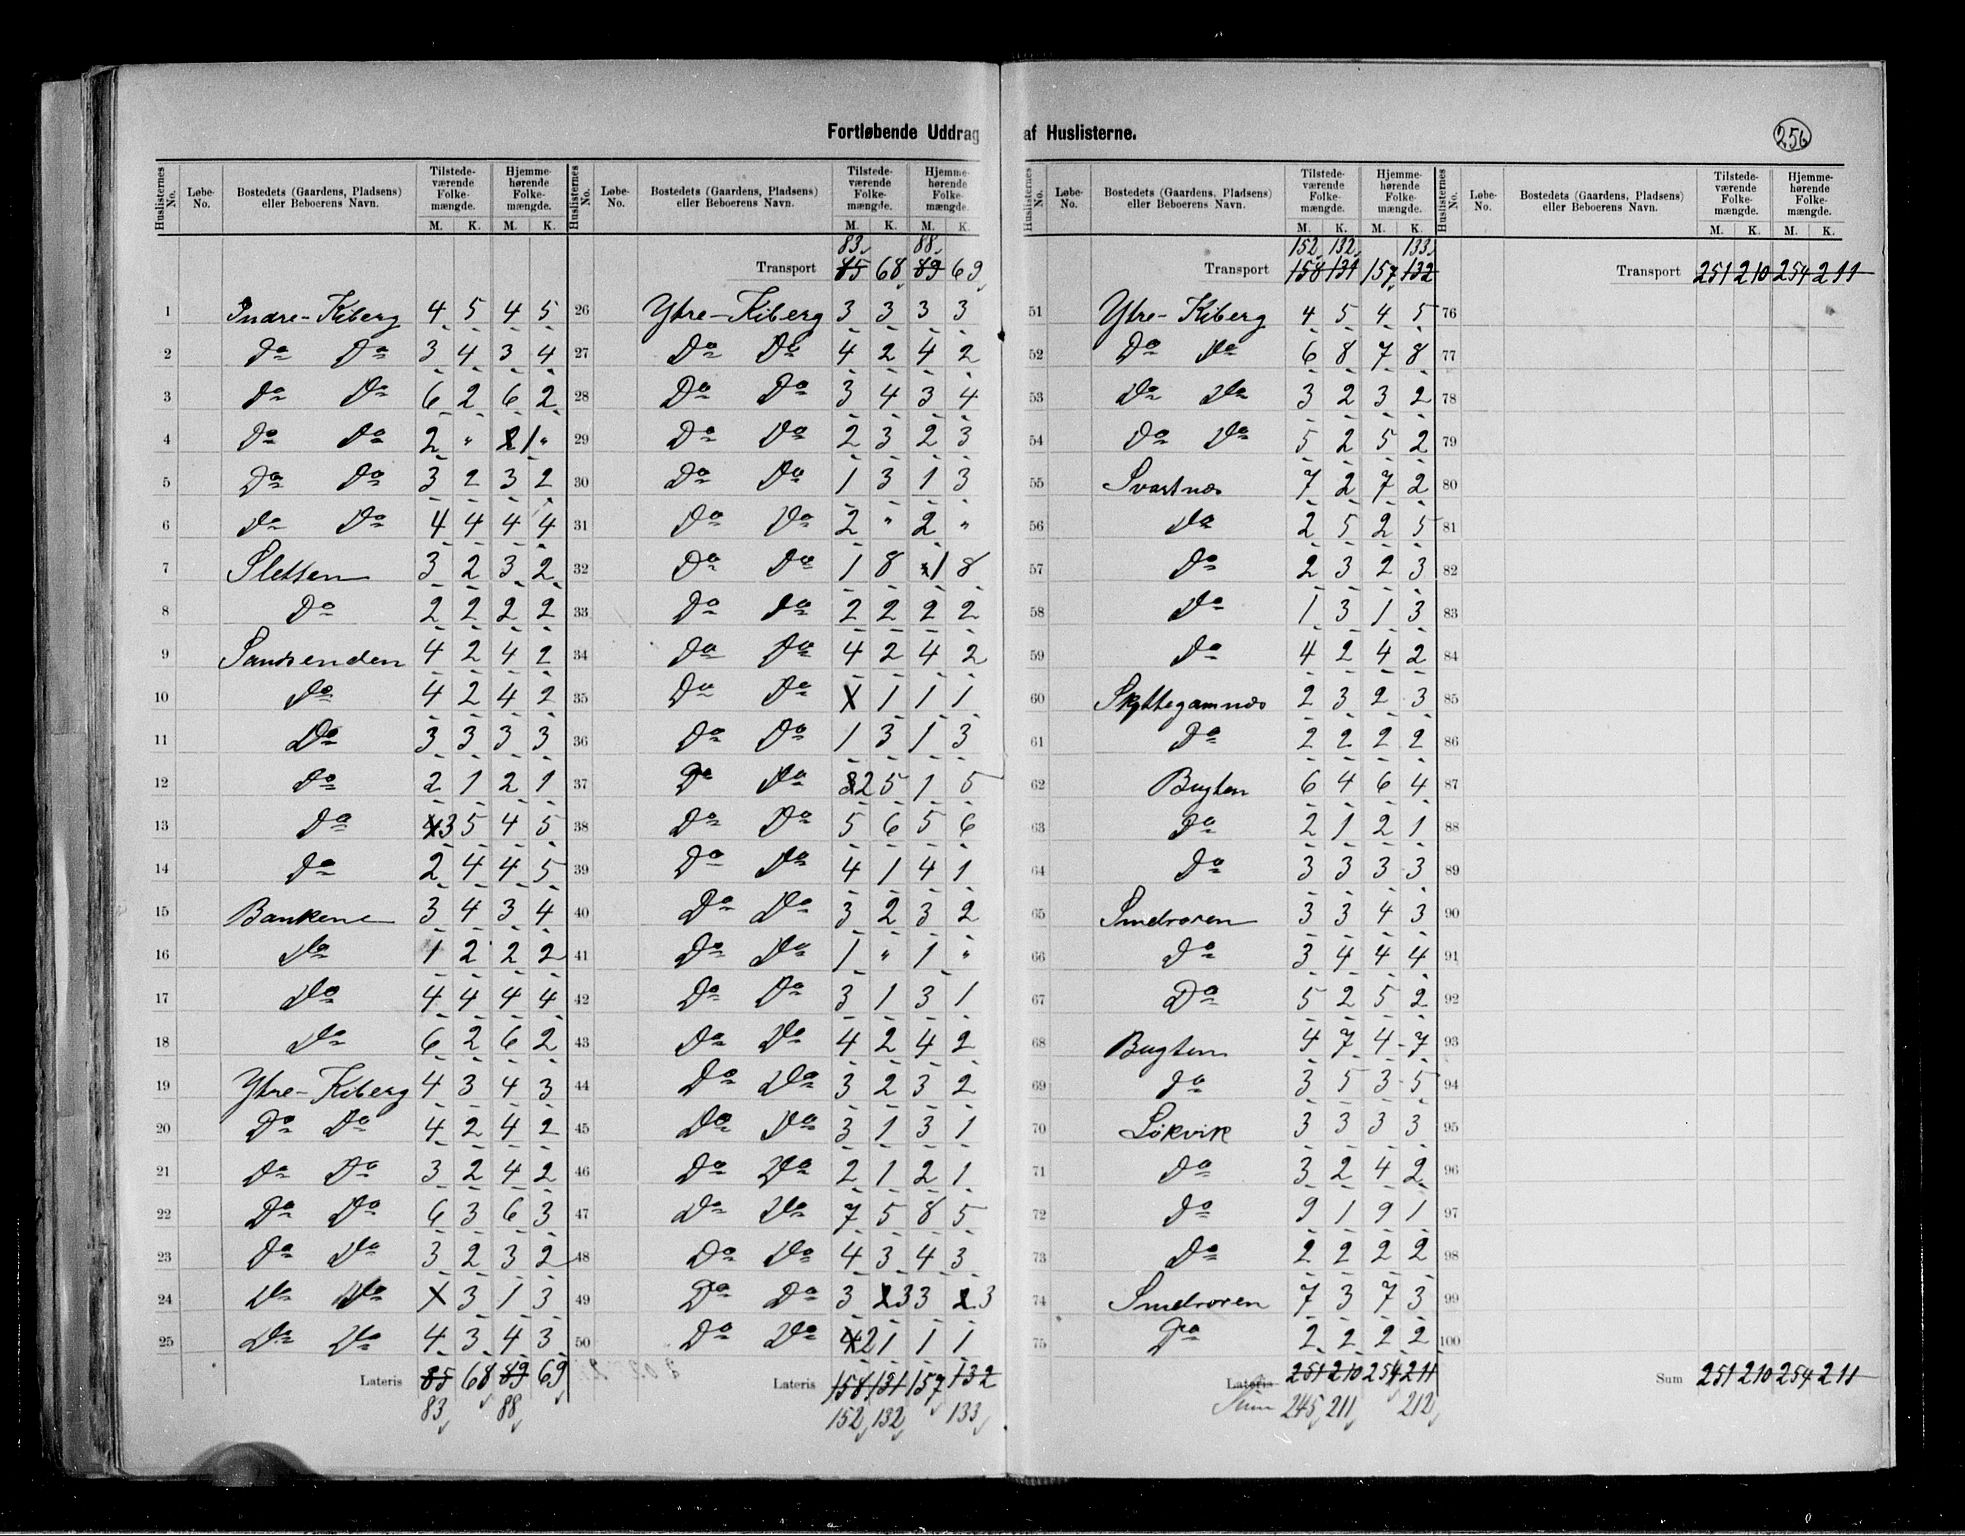 Fortløbende Uddrag af Huslisterne.
256
Huslisternes No. Løbe-No. Bostedets (Gaardens, Pladsens) eller Beboerens Navn. Tilstedeværende Folkemængde. M. K. Hjemmehørende Folkemængde. M. K.
1 Indre-Kiberg 4 5 4 5
2 Do Do 3 4 3 4
3 Do Do 6 2 6 2
4 Do Do 2 " 2 1 "
5 Do Do 3 2 3 2
6 Do Do 4 4 4 4
7 Sletten 3 2 3 2
8 Do 2 2 2 2
9 Sandsenden 4 2 4 2
10 Do 4 2 4 2
11 Do 3 3 3 3
12 Do 2 1 2 1
13 Do 4 3 5 4 5
14 Do 2 4 4 5
15 Bankene 3 4 3 4
16 Do 1 2 2 2
17 Do 4 4 4 4
18 Do 6 2 6 2
19 Ytre-Kiberg 4 3 4 3
20 Do Do 4 2 4 2
21 Do Do 3 2 4 2
22 Do Do 6 3 6 3
23 Do Do 3 2 3 2
24 Do Do X 3 1 3
25 Do Do 4 3 4 3
Lateris 85 68 89 69
83 88
Huslisternes No. Løbe-No. Bostedets (Gaardens, Pladsens) eller Beboerens Navn. Tilstedeværende Folkemængde. M. K. Hjemmehørende Folkemængde. M. K.
83 88
Transport 85 68 89 69
26 Ytre-Kiberg 3 3 3 3
27 Do Do 4 2 4 2
28 Do Do 3 4 3 4
29 Do Do 2 3 2 3
30 Do Do 1 3 1 3
31 Do Do 2 " 2 "
32 Do Do 1 8 1 8
33 Do Do 2 2 2 2
34 Do Do 4 2 4 2
35 Do Do X 1 1 1
36 Do Do 1 3 1 3
37 Do Do 3 2 5 1 5
38 Do Do 5 6 5 6
39 Do Do 4 1 4 1
40 Do Do 3 2 3 2
41 Do Do 1 " 1 "
42 Do Do 3 1 3 1
43 Do Do 4 2 4 2
44 Do Do 3 2 3 2
45 Do Do 3 1 3 1
46 Do Do 2 1 2 1
47 Do Do 7 5 8 5
48 Do Do 4 3 4 3
49 Do Do 3 2 3 3 2 3
50 Do Do 4 2 1 1 1
Lateris 158 131 157 132
152 132 133
Huslisternes No. Løbe-No. Bostedets (Gaardens, Pladsens) eller Beboerens Navn. Tilstedeværende Folkemængde. M. K. Hjemmehørende Folkemængde. M. K.
152 132 133
Transport 158 131 157 132
51 Ytre-Kiberg 4 5 4 5
52 Do Do 6 8 7 8
53 Do Do 3 2 3 2
54 Do Do 5 2 5 2
55 Svartnæs 7 2 7 2
56 Do 2 5 2 5
57 Do 2 3 2 3
58 Do 1 3 1 3
59 Do 4 2 4 2
60 Skyttegamnæs 2 3 2 3
61 Do 2 2 2 2
62 Bugten 6 4 6 4
63 Do 2 1 2 1
64 Do 3 3 3 3
65 Smelroren 3 3 4 3
66 Do 3 4 4 4
67 Do 5 2 5 2
68 Bugten 4 7 4 7
69 Do 3 5 3 5
70 Løkvik 3 3 3 3
71 Do 3 2 4 2
72 Do 9 1 9 1
73 Do 2 2 2 2
74 Smelroren 7 3 7 3
75 Do 2 2 2 2
Lateris 251 210 254 211
Sum 245 211 212
Huslisternes No. Løbe-No. Bostedets (Gaardens, Pladsens) eller Beboerens Navn. Tilstedeværende Folkemængde. M. K. Hjemmehørende Folkemængde. M. K.
Transport 251 210 254 211
76
77
78
79
80
81
82
83
84
85
86
87
88
89
90
91
92
93
94
95
96
97
98
99
100
Sum 251 210 254 211